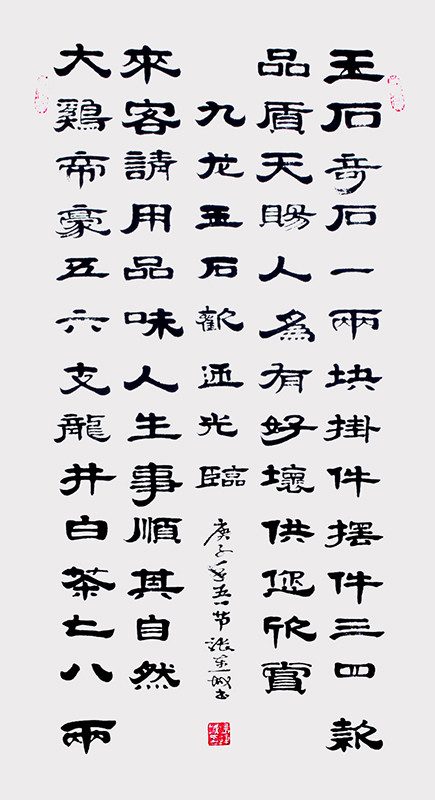 玉石奇石一兩块掛件擺件三四款
品質天賜人為有好壞供您欣賞
大鷄帝豪五六支龍井白茶七八兩
來客請用品味人生事順其自然
九龙玉石歡迎光臨
庚子年五一节 張城书